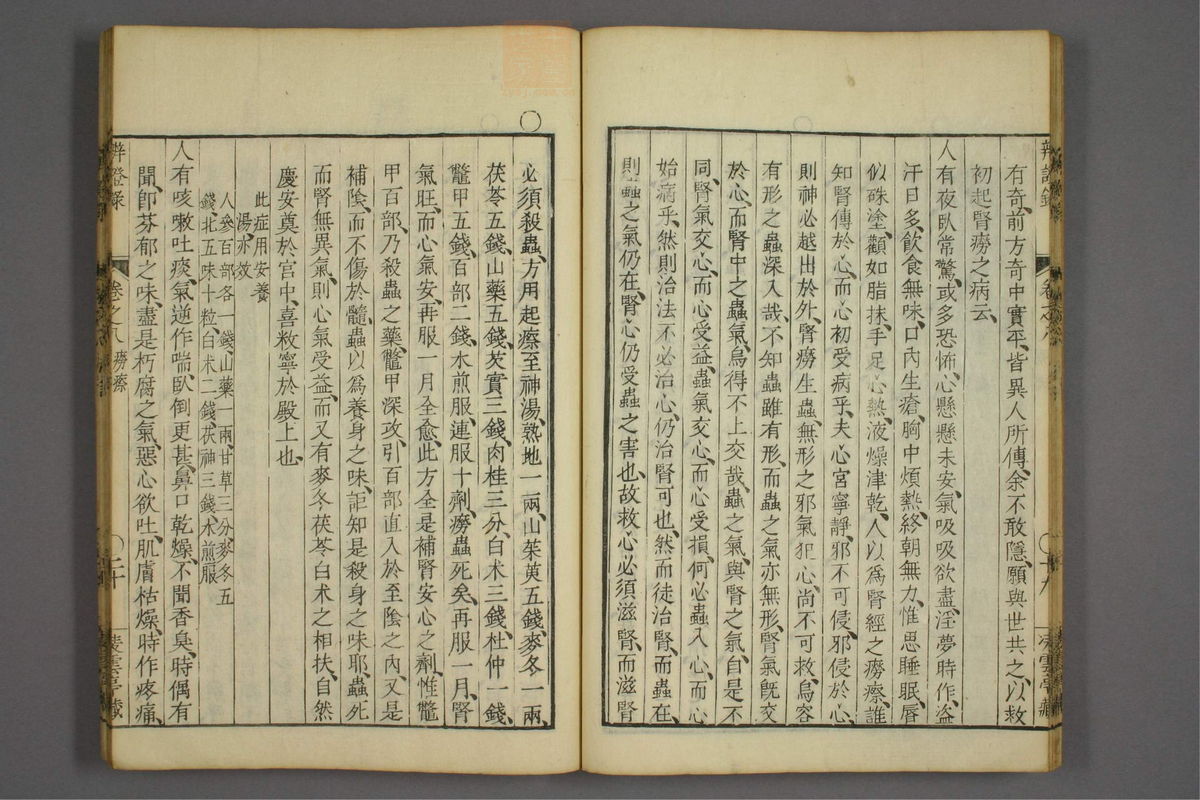 有奇前方奇中實平皆異人所傳余不敢隱願與世共之以救
初起腎癆之病云
人有夜臥常驚或多恐怖心懸懸未安氣吸吸欲盡淫夢時作盜
汗日多飲食無味口內生瘡胸中煩熱終朝無力惟思睡眠唇
似硃塗顴如脂抹手足心熱液燥津乾人以為腎經之癆瘵誰
知腎傳於心而心初受病乎夫心宮寧靜邪不可侵邪侵於心
則神必越出於外腎癆生蟲無形之邪氣犯心尚不可救烏容
有形之蟲深入哉不知蟲雖有形而蟲之氣亦無形腎氣既交
於心而腎中之蟲氣烏得不上交哉蟲之氣與腎之氣自是不
同腎氣交心而心受益蟲氣交心而心受損何必蟲入心而心
始病乎然則治法不必治心仍治腎可也然而徒治腎而蟲在
則蟲之氣仍在腎心仍受蟲之害也故救心必須滋腎而滋腎
辨證錄
卷之八
十九
凌雲亭藏
必須殺蟲方用起瘵至神湯熟地一兩山茱萸五錢麥冬一兩
茯苓五錢山藥五錢芡實三錢肉桂三分白术三錢杜仲一錢
鱉甲五錢百部二錢水煎服連服十劑癆蟲死矣再服一月腎
氣旺而心氣安再服一月全愈此方全是補腎安心之劑惟鱉
甲百部乃殺蟲之藥鱉甲深攻引百部直入於至陰之內又是
補陰而不傷於髓蟲以為養身之味詎知是殺身之味耶蟲死
而腎無異氣則心氣受益而又有麥冬茯苓白术之相扶自然
慶安奠於宮中喜敉寧於殿上也
此症用安養
湯亦效
人參百部各一錢山藥一兩甘草三分麥冬五
錢北五味十粒白术二錢茯神三錢水煎服
人有咳嗽吐痰氣逆作喘臥倒更甚鼻口乾燥不聞香臭時偶有
聞即芬郁之味盡是朽腐之氣惡心欲吐肌膚枯燥時作疼痛
辨證錄
卷之八
癆瘵
二十
凌雲亭藏